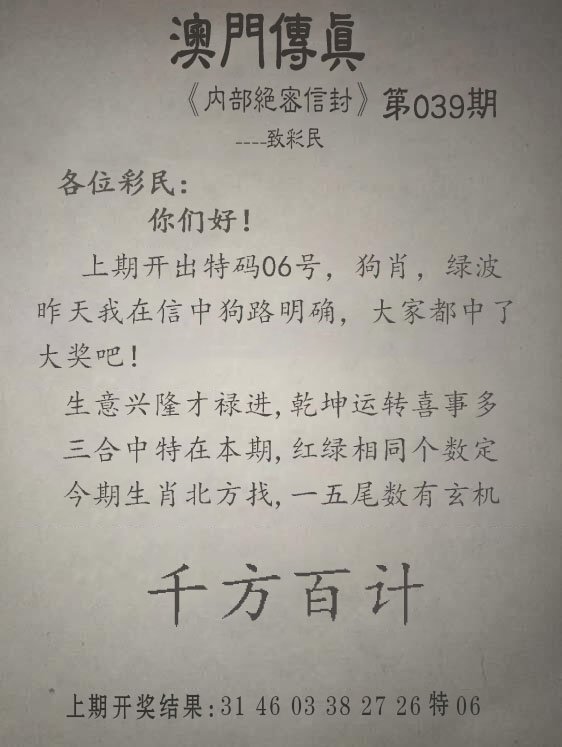 澳門傳眞
《内部絕密信封》第039期
----致彩民
各位彩民：
你们好！
上期开出特码06号，狗肖，绿波
昨天我在信中狗路明确，大家都中了
大奖吧！
生意兴隆才禄进,乾坤运转喜事多
三合中特在本期,红绿相同个数定
今期生肖北方找,一五尾数有玄机
千方百计
上期开奖结果:31 46 03 38 27 26 特 06